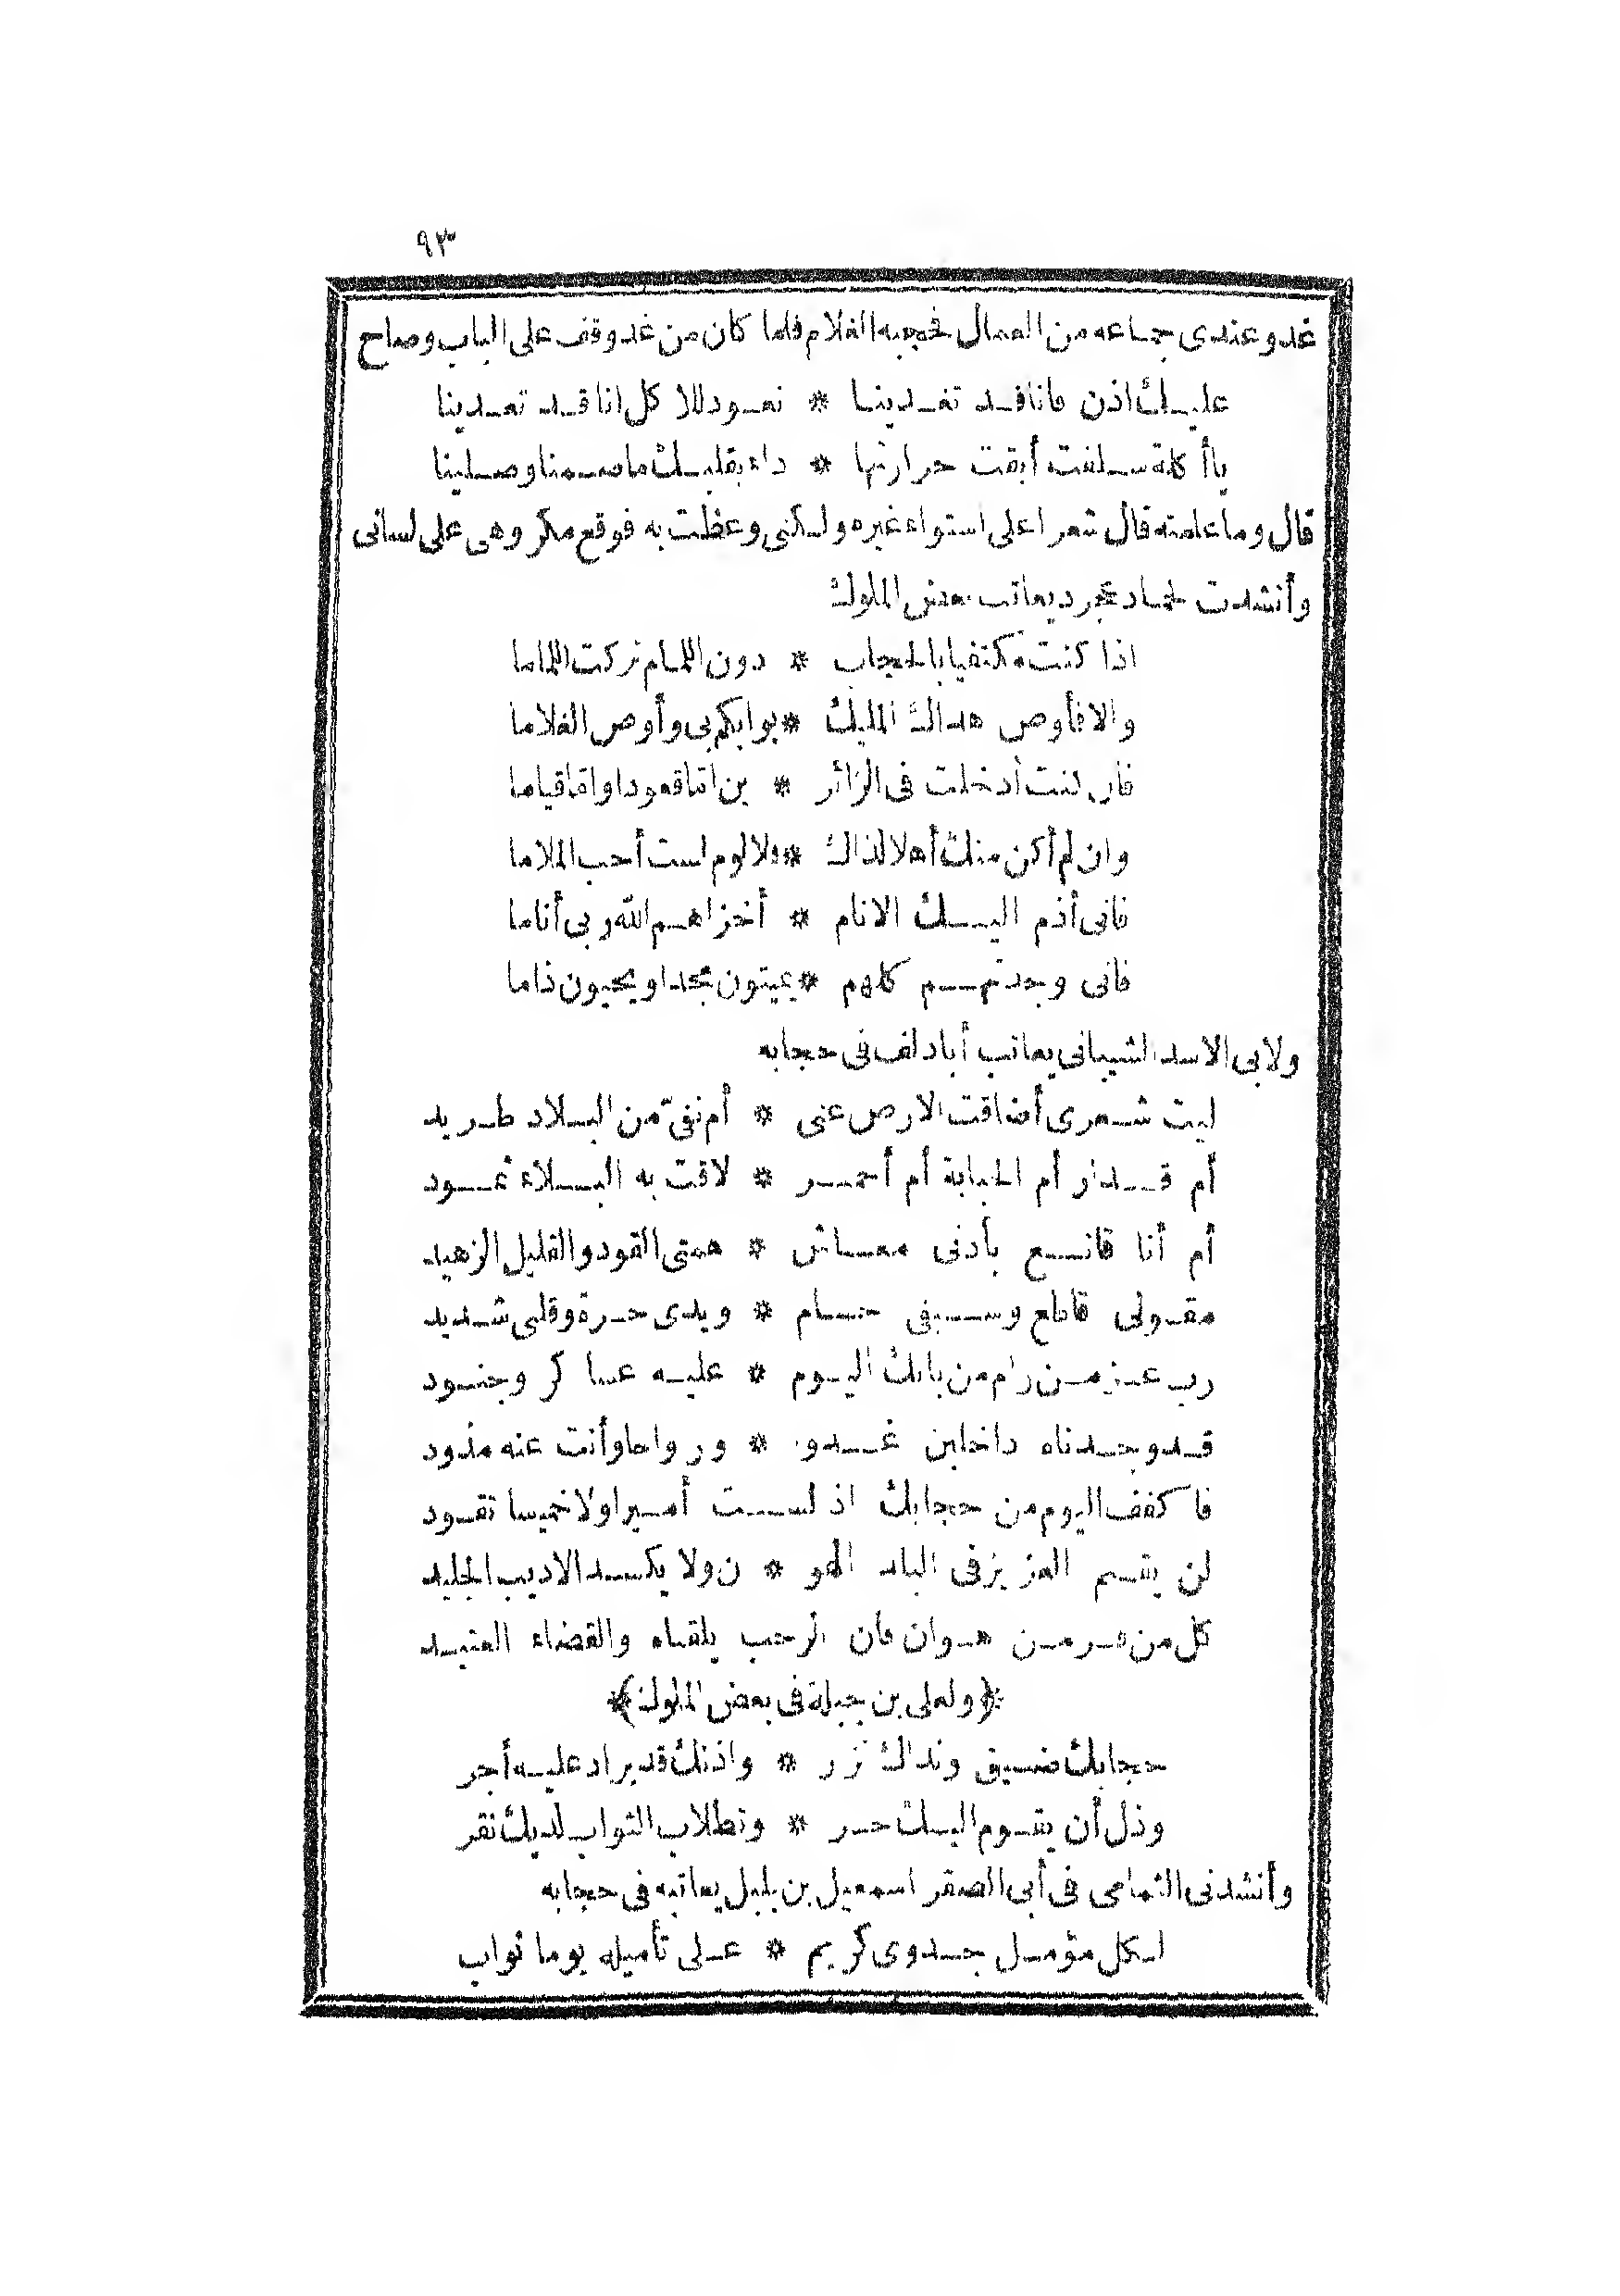 ٩٣
غد وعندى جماعه من العمال فحجبه الغلام فلما كان من غد وقف على الباب وصاح
عليك اذن فانا قد تغدينا * نعود للاكل انا قد تعدينا
ياأكلة سلفت أبقت حرارتها * داء بقلبك ماصمنا وصلينا
قال وما علمته قال شعرا على استواء غيره ولكنى وعظت به فوقع مكر وهى على لسانى
وأنشدت لحماد عجرد يعاتب بعض الملوك
اذا كنت مكتفيا بالحجاب * دون اللمام تركت اللماما
والا فأوص هداك المليك * بوابكم بى وأوص الغلاما
فان كنت أدخلت فى الزائر * ين اما قعودا واما قياما
وان لم أكن منك أهلا لذاك * فلا لوم لست أحب الملاما
فانى أذم اليك الانام * أخزاهم الله ربى أناما
فانى وجدتهم كلهم * يميتون مجدا ويحيون ذاما
ولابى الاسد الشيبانى يعاتب أبا دلف فى حجابه
ليت شعرى أضاقت الارض عنى * أم نفىّ من البلاد طريد
أم قدار أم الحبابة أم أحمر * لاقت به البلاء ثمود
أم أنا قانع بأدنى معاش * همتى القود والقليل الزهيد
مقولى قاطع وسيفى حسام * ويدى حرة وقلبى شديد
رب عز من رام من بابك اليوم * عليه عساكر وجنود
قد وجدناه داخلين غدو * ورواحا وأنت عنه مذود
فاكفف اليوم من حجابك اذ لست أميرا ولا خميسا تقود
لن يقيم العزيز فى البلد الهو * ن ولا يكسد الاديب الجليد
كل من فر من هوان فان الرحب يلقاه والقضاء العتيد
﴿ولعلى بن جبلة فى بعض الملوك﴾
حجابك ضيق ونداك نزر * واذنك قد يراد عليه أجر
وذل أن يقوم اليك حر * وتطلاب الثواب لديك نقر
وأنشدنى الثمامى فى أبى الصقر اسمعيل بن بلبل يعاتبه فى حجابه
لكل مؤمل جدوى كريم * على تأميله يوما ثواب